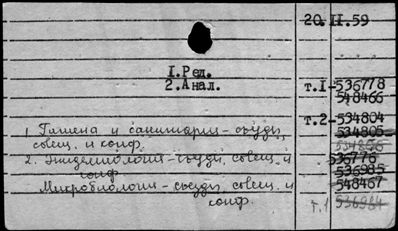 20.II.59
1.Ред.
2.Анал.
т.1-536778
548466
т.2-534804
534805
534806
1. Гигиена и санитария - съезды,
совещ. и конф.
2. Эпидемиология - съезды, совещ. и
конф.
536776
536985
Микробиология - съезды, совещ. и
конф.
548467
т.1 536984